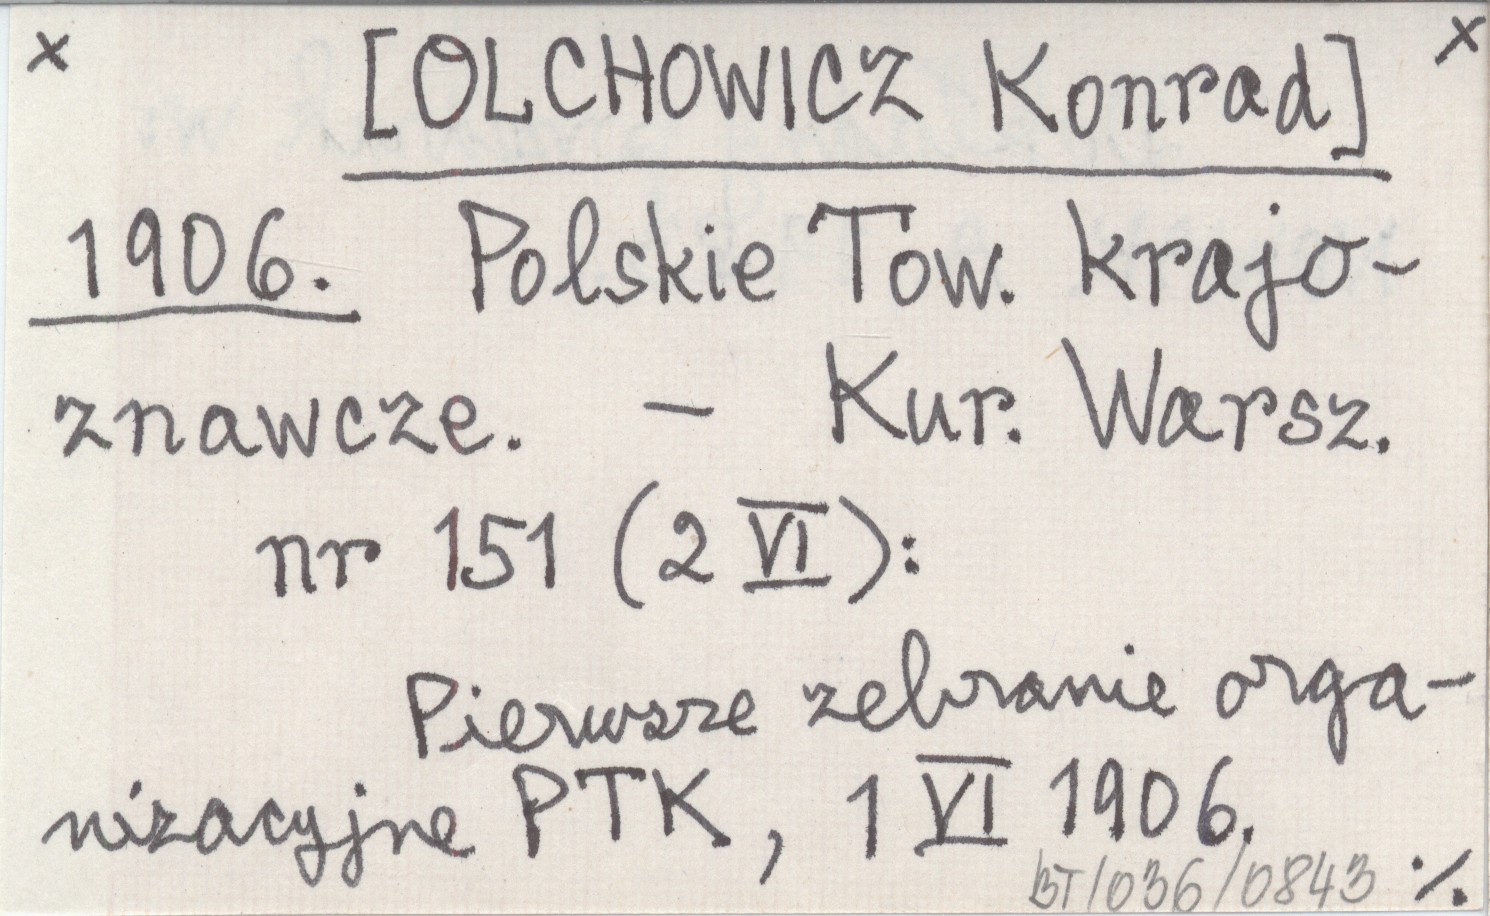 x [OLCHOWICZ Konrad] x
1906. Polskie Tow. krajo-
znawcze. – Kur. Warsz.
nr 151 (2 VI):
Pierwsze zebranie orga-
nizacyjne PTK, 1 VI 1906.
BT/036/0843 ·/.